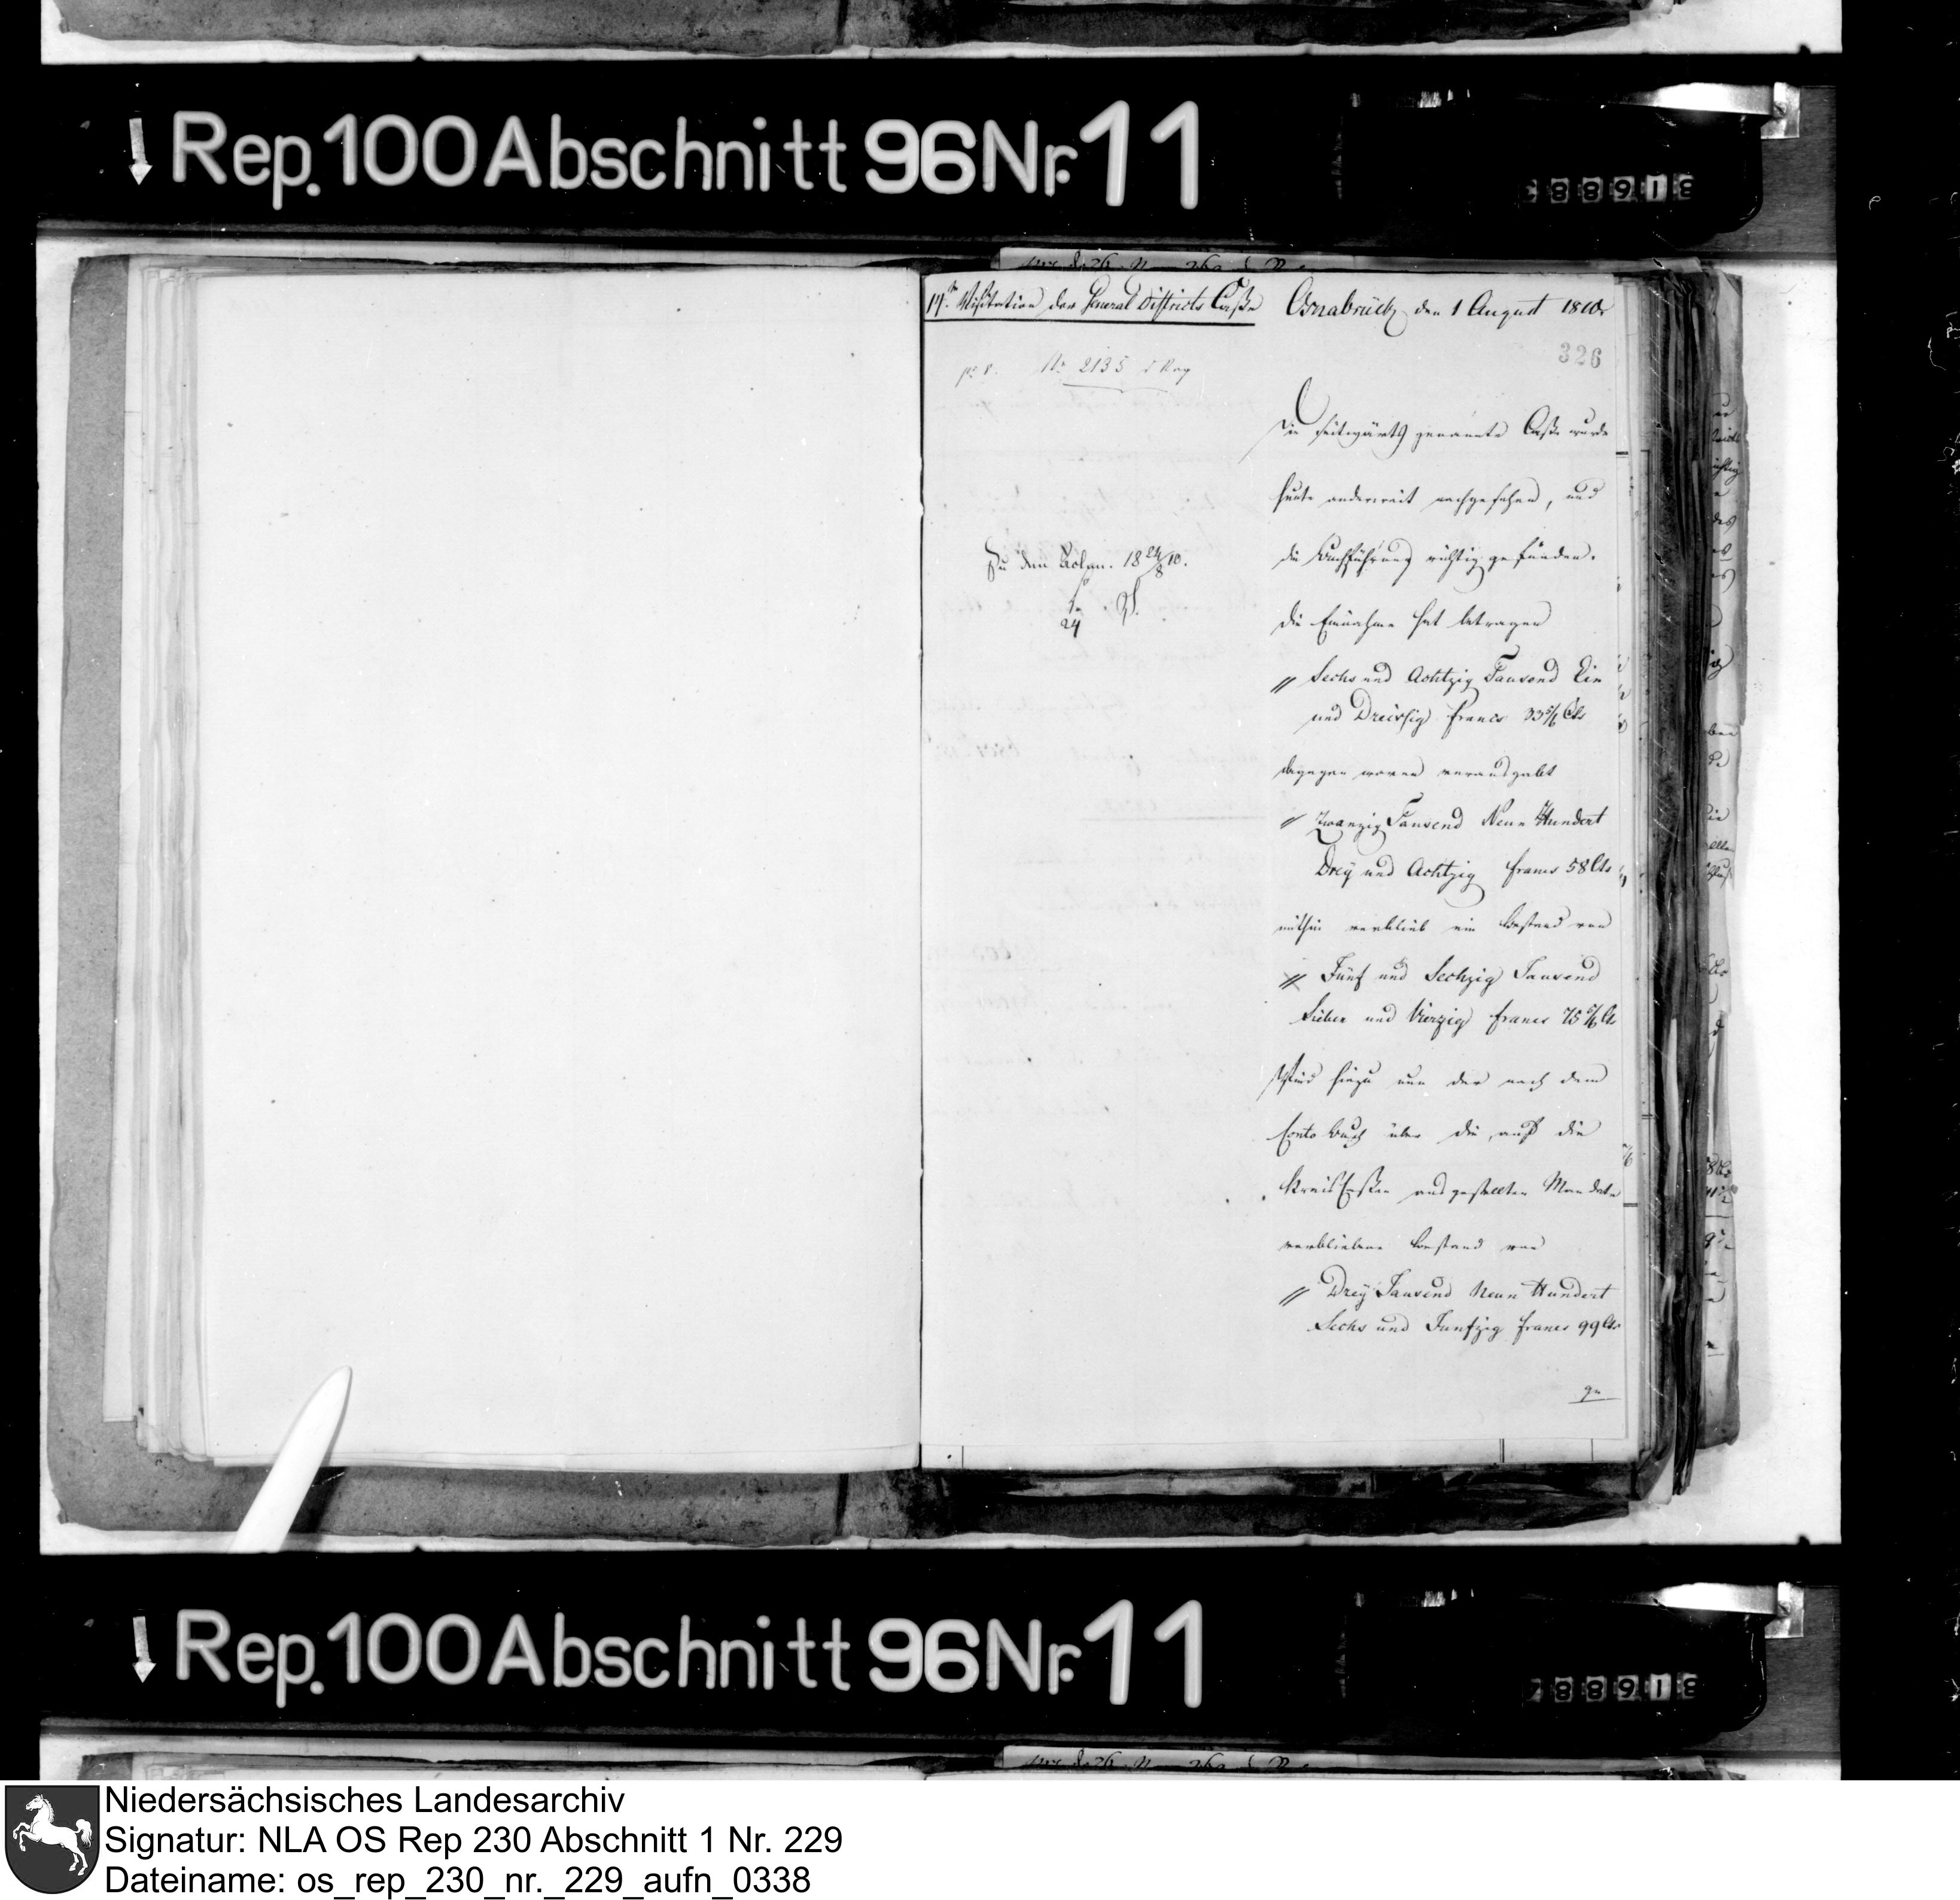 Rep. 100 Abschnitt 96 Nr. 11
14. Visitation der General Districts Caße
Osnabrück, den 1 August 1810.
326
Nr. 2135
Die seitwärts genannte Caße wurde
heute anderweit nachgesehen, und
die Buchführung richtig gefunden.
Zu den Acten. 18 24/8 10.
24
die Einnahme hat betragen
〃 Sechs und Achtzig Tausend Ein
und Dreissig francs 33 5/6 Cts
dagegen waren verausgabt
〃 Zwanzig Tausend Neun Hundert
Drey und Achtzig francs 58 Cts
mithin verblieb ein Bestand von
〃 Fünf und Sechzig Tausend
Sieben und Vierzig francs 75 5/6 Cts
Wird hiezu nun der nach dem
Conto Buch über die, auf die
Kreis Caßen ausgestellten Mandate
verbliebene Bestand von
〃 Drey Tausend Neun Hundert
Sechs und Funfzig francs 99 Cts
Rep. 100 Abschnitt 96 Nr. 11
Niedersächsisches Landesarchiv
Signatur: NLA OS Rep 230 Abschnitt 1 Nr. 229
Dateiname: os_rep_230_nr._229_aufn_0338